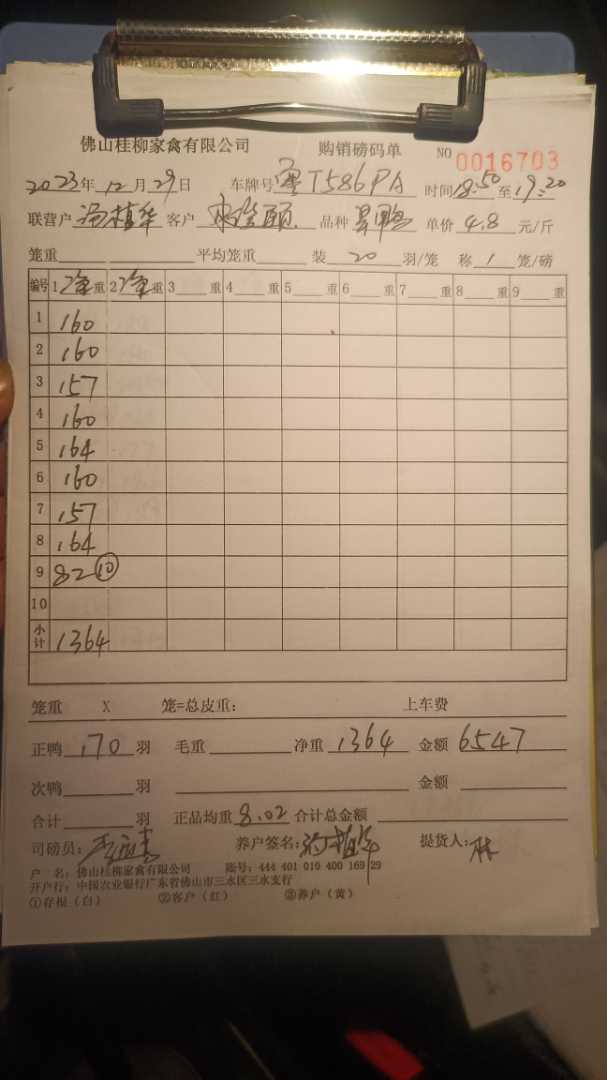 佛山桂柳家禽有限公司 购销磅码单 NO 0016703
2023年 12月 29日 车牌号 粤T586PA 时间 18:50 至 19:20
联营户 汤植华 客户 品种 单价 4.8 元/斤
笼重 平均笼重 装 20 羽/笼 称 1 笼/磅
编号 1 净重 2 净重 3 重 4 重 5 重 6 重 7 重 8 重 9 重
1 160
2 160
3 157
4 160
5 164
6 160
7 157
8 164
9 82 ⑩
10
小计 1364
笼重 X 笼=总皮重: 上车费
正鸭 170 羽 毛重 净重 1364 金额 6547
次鸭 羽 金额
合计 羽 正品均重 8.02 合计总金额
司磅员: 养户签名: 提货人: 林
户 名: 佛山桂柳家禽有限公司 账号: 444 401 010 400 169 29
开户行: 中国农业银行广东省佛山市三水区三水支行
①存根(白) ②客户(红) ③养户(黄)